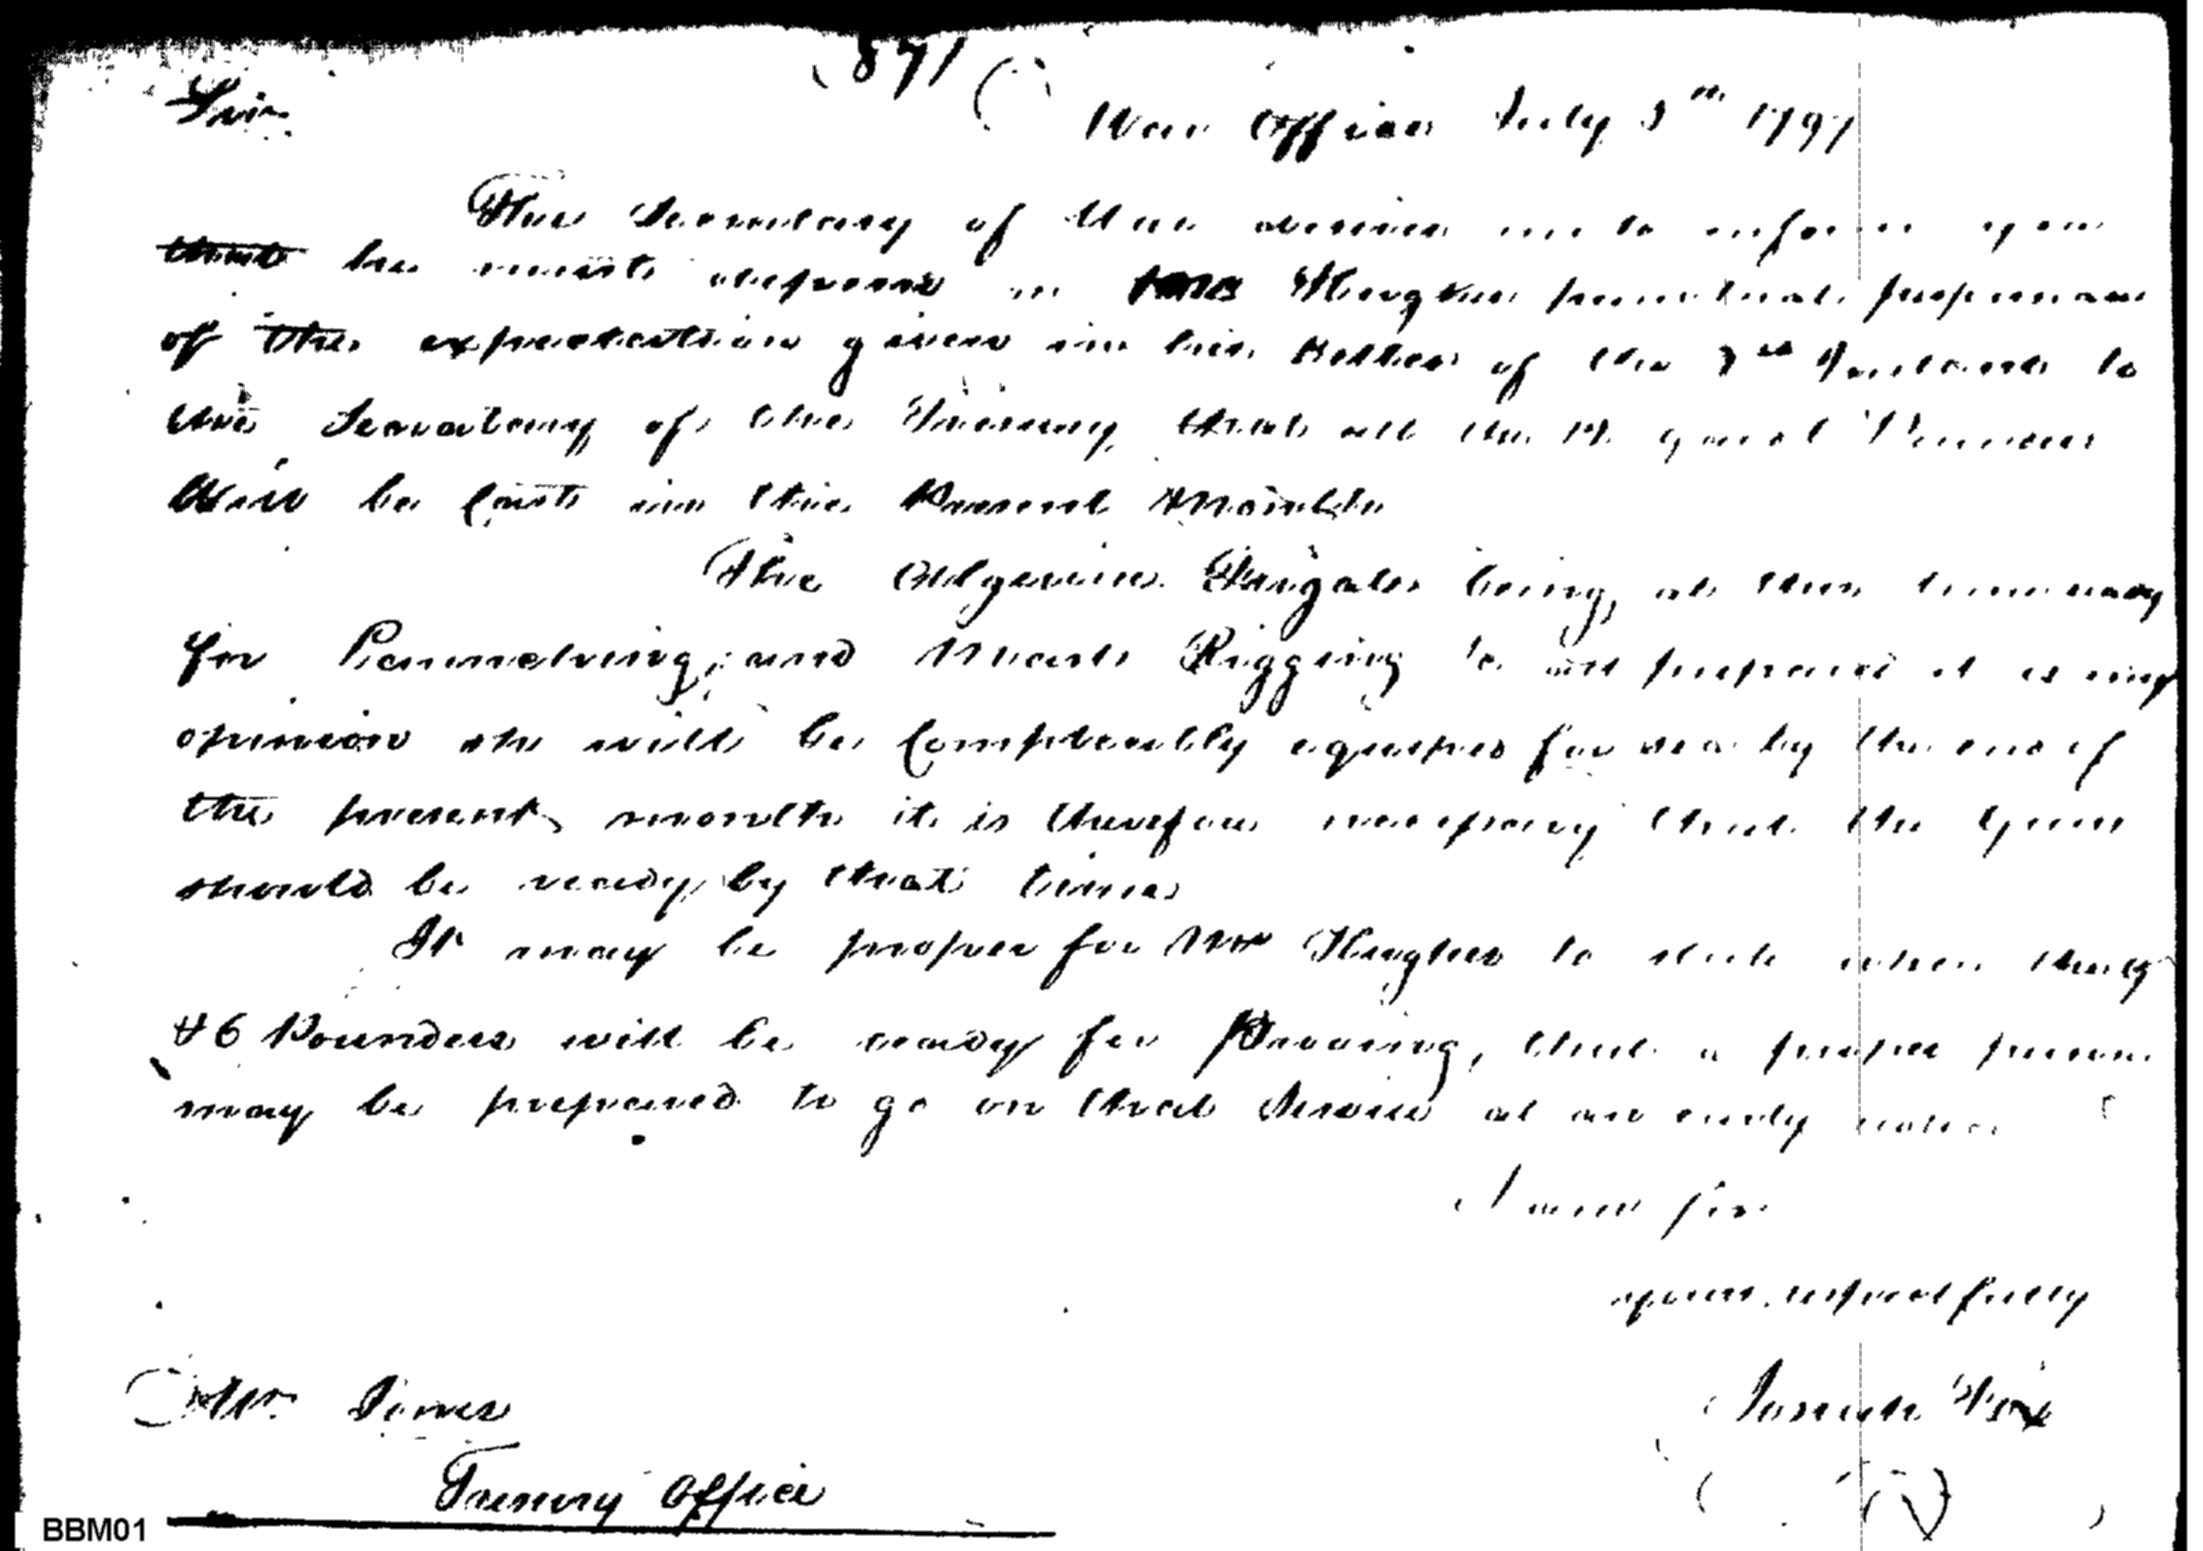 871
Sir
War Office July 5th 1797
The Secretary of War desires me to inform you
that he must depend on Mr Hughes punctual performance
of the expectation given in his Letter of the 3rd Instant to
the Secretary of the Treasury that all the 12 Pounders
Will be Cast in the Present Month
The Algerine Frigate being at this time ready
for Launching, and Masts Rigging &c all prepared it is my
opinion she will be Compleatly equiped for sea by the end of
the present month it is therefore necessary that the Guns
should be ready by that time
It may be proper for Mr Hughes to state when thirty
6 Pounders will be ready for Proving, that a proper person
may be prepared to go on that Service at an early notice
I am Sir
yours respectfully
Josiah Fox
Mr Jones
Treasury Office
BBM01